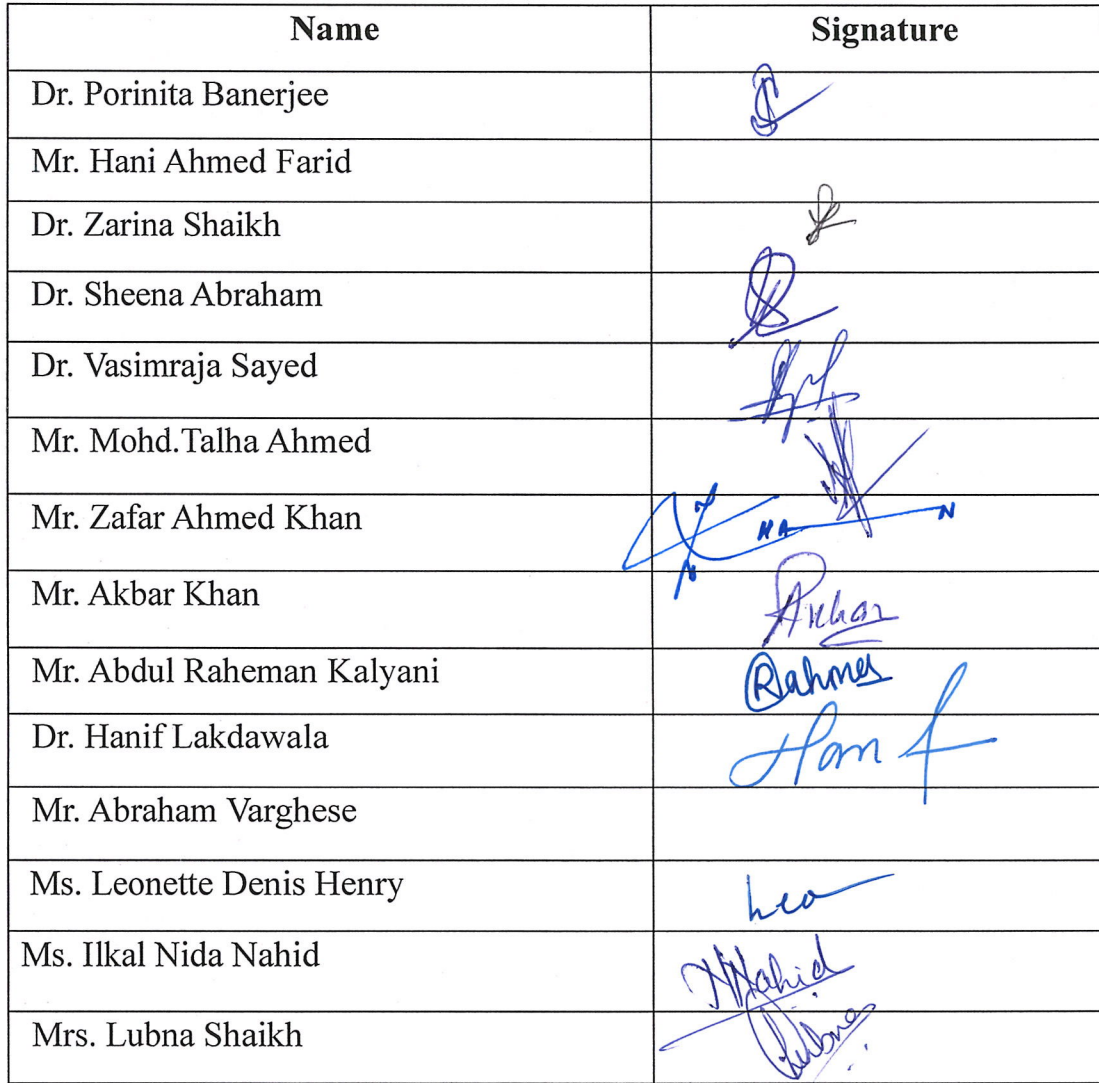 Name Signature
Dr. Porinita Banerjee
Mr. Hani Ahmed Farid
Dr. Zarina Shaikh
Dr. Sheena Abraham
Dr. Vasimraja Sayed
Mr. Mohd.Talha Ahmed
Mr. Zafar Ahmed Khan
Mr. Akbar Khan Akbar
Mr. Abdul Raheman Kalyani
Dr. Hanif Lakdawala Hanif
Mr. Abraham Varghese
Ms. Leonette Denis Henry Leo
Ms. Ilkal Nida Nahid NNahid
Mrs. Lubna Shaikh Lubna